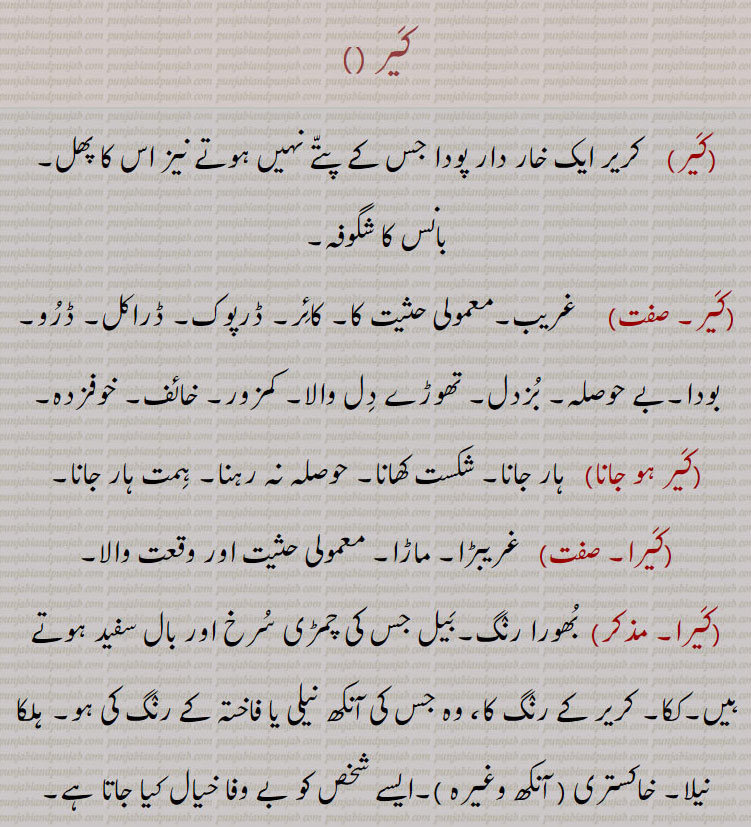 کَیر ()
(کَیر) کریر ایک خار دار پودا جس کے پتّے نہیں ہوتے نیز اس کا پھل۔
بانس کا شگوفہ۔
(کَیر۔ صفت) غریب۔معمولی حثیت کا۔ کائِر۔ ڈرپوک۔ ڈراکل۔ ڈرُو۔
بودا۔بے حوصلہ۔ بُزدل۔ تھوڑے دِل والا۔ کمزور۔ خائف۔ خوفزدہ۔
(کَیر ہو جانا) ہار جانا۔ شکست کھانا۔ حوصلہ نہ رہنا۔ ہِمت ہار جانا۔
(کَیرا۔ صفت) غریبڑا۔ ماڑا۔ معمولی حثیت اور وقعت والا۔
(کَیرا۔ مذکر) بُھورا رنگ۔بَیل جس کی چمڑی سُرخ اور بال سفید ہوتے
ہیں۔ککا۔ کریر کے رنگ کا، وہ جس کی آنکھ نیلی یا فاختہ کے رنگ کی ہو۔ ہلکا
نیلا۔ خاکستری (آنکھ وغیرہ)۔ایسے شخص کو بے وفا خیال کیا جاتا ہے۔